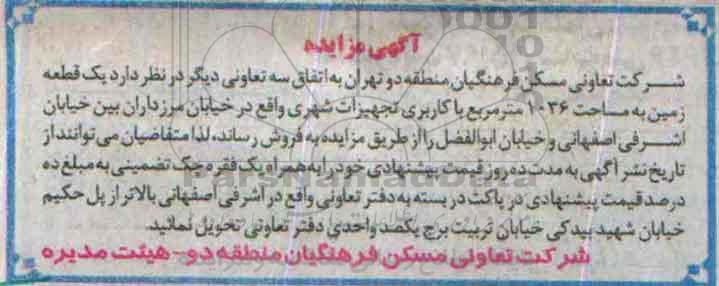 آگهی مزایده
شرکت تعاونی مسکن فرهنگیان منطقه دو تهران به اتفاق سه تعاونی دیگر در نظر دارد یک قطعه
زمین به مساحت ۱۰۳۶ مترمربع با کاربری تجهیزات شهری واقع در خیابان مرزداران بین خیابان
اشرفی اصفهانی و خیابان ابوالفضل را از طریق مزایده به فروش رساند، لذا متقاضیان می توانند از
تاریخ نشر آگهی به مدت ده روز قیمت پیشنهادی خود را به همراه یک فقره چک تضمینی به مبلغ ده
درصد قیمت پیشنهادی در پاکت در بسته به دفتر تعاونی واقع در اشرفی اصفهانی بالاتر از پل حکیم
خیابان شهید بیدکی خیابان تربیت برج یکصد واحدی دفتر تعاونی تحویل نمائید.
شرکت تعاونی مسکن فرهنگیان منطقه دو - هیئت مدیره